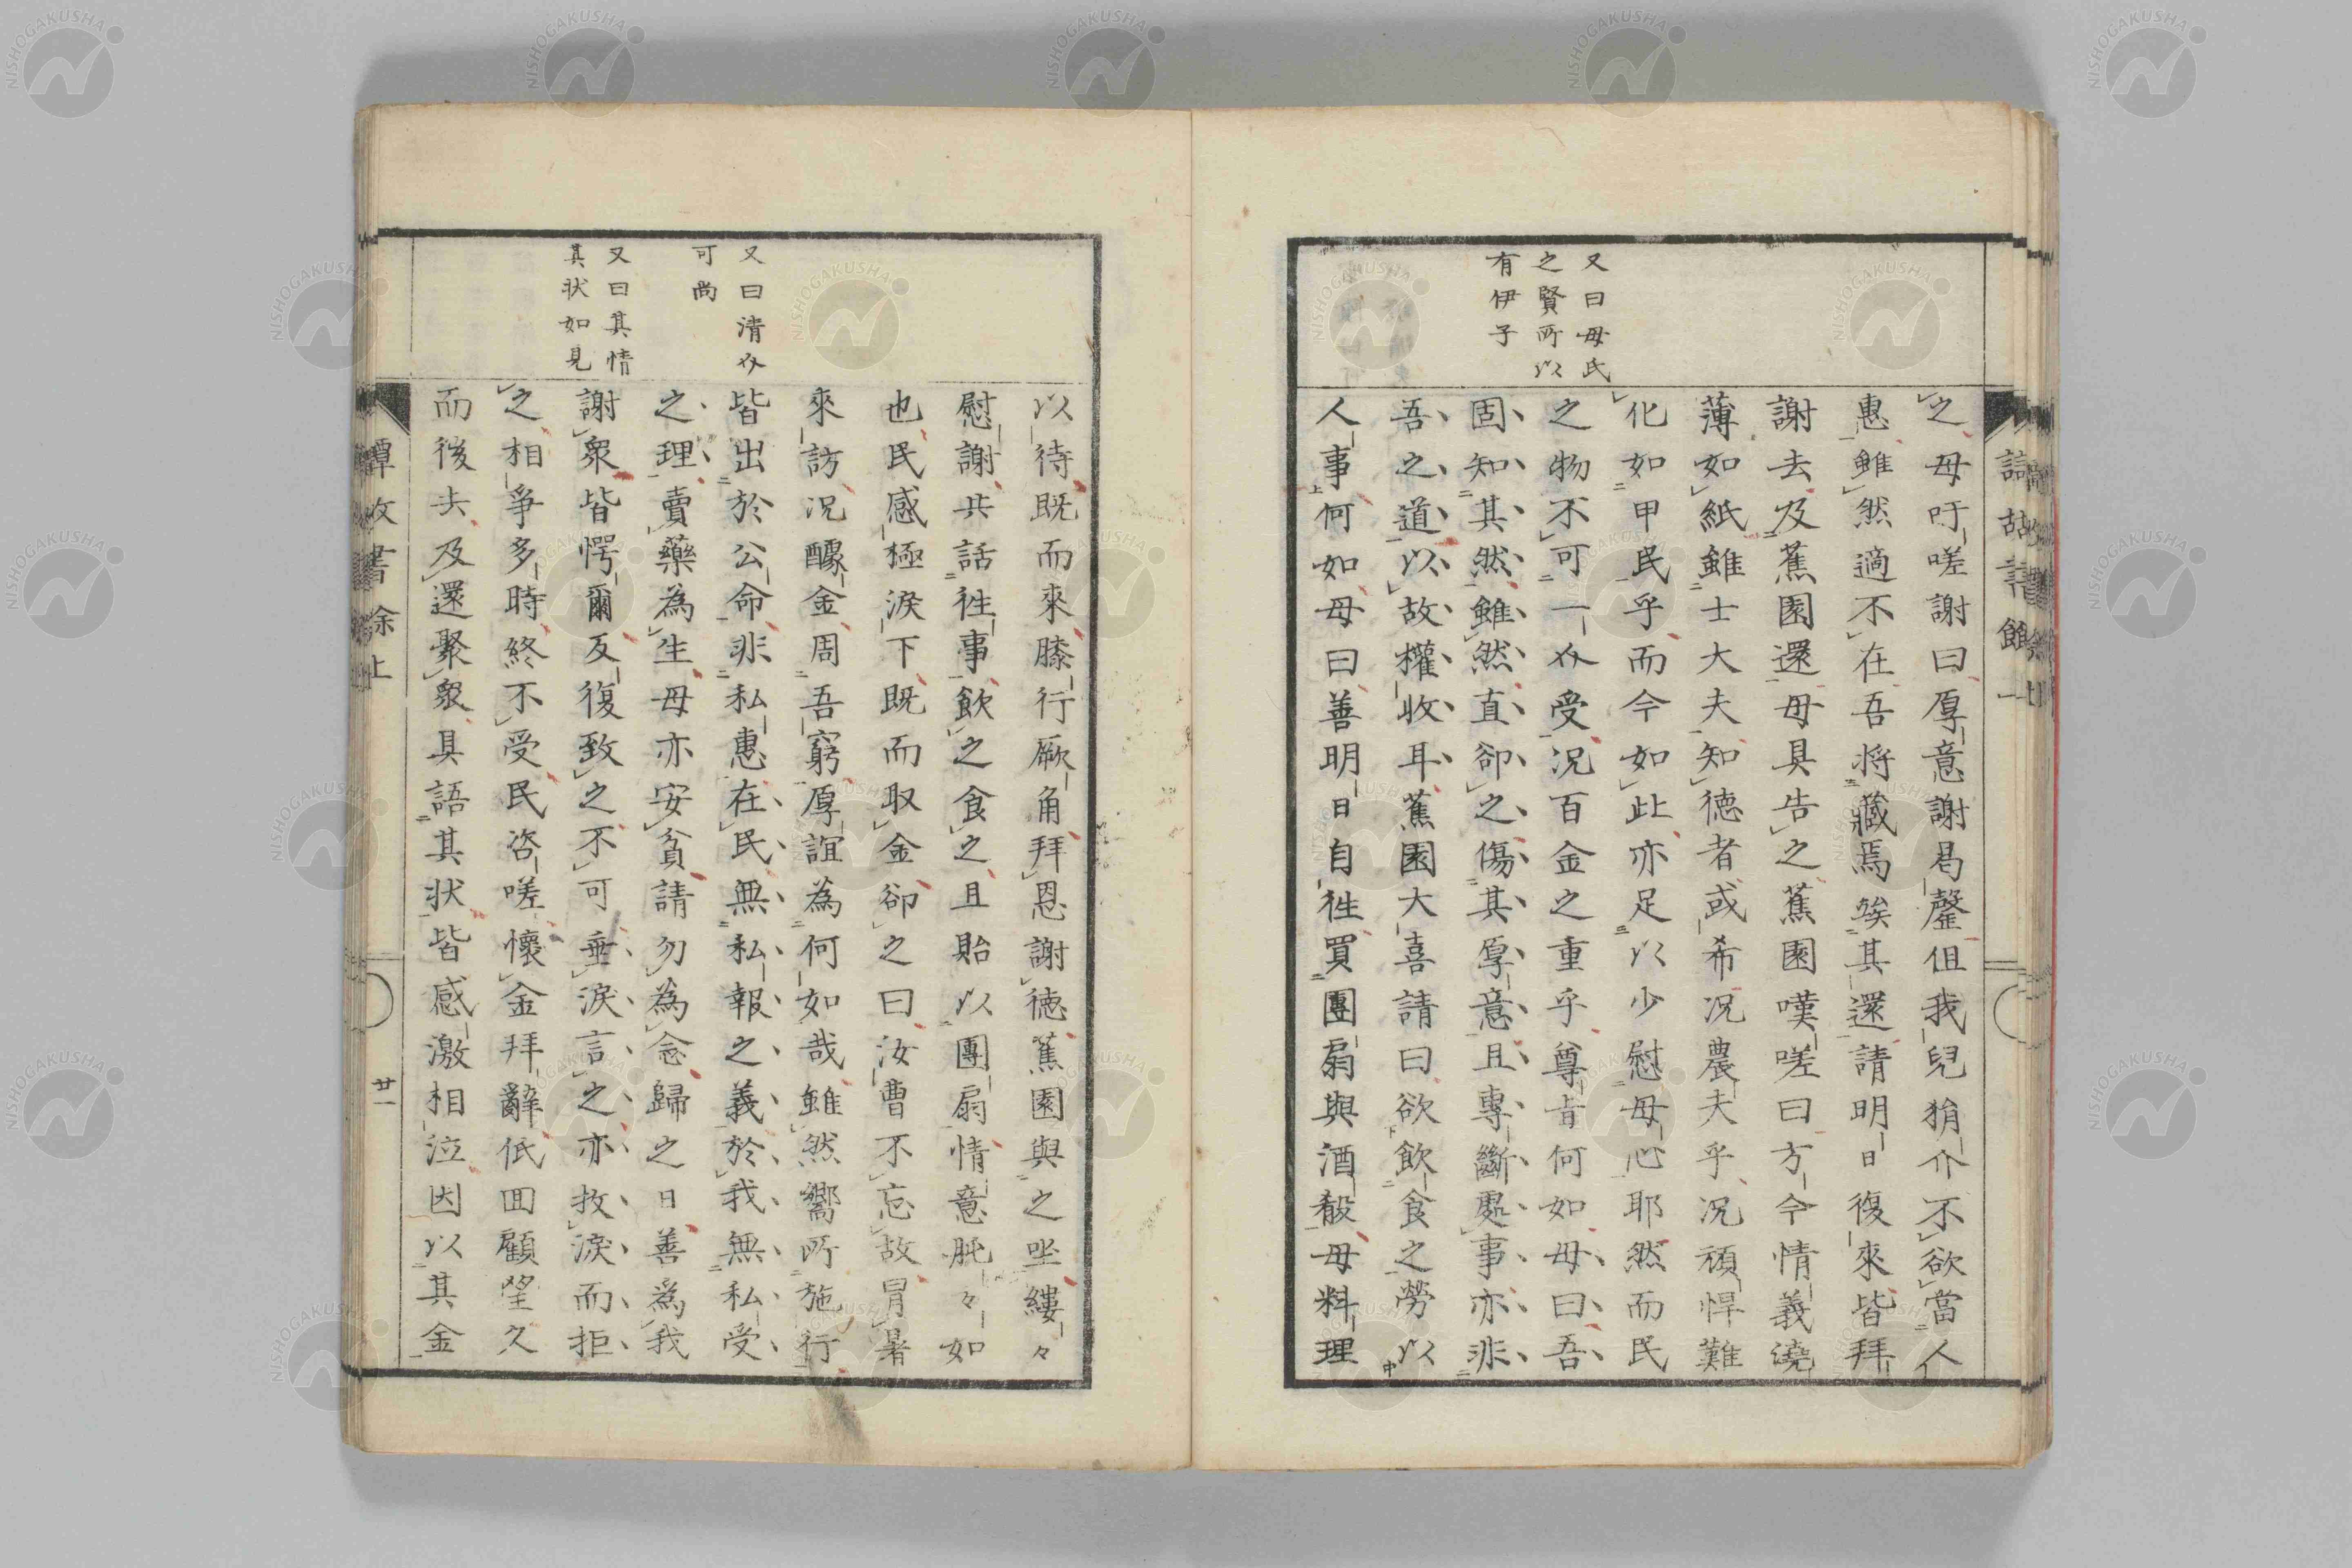 又曰母氏
之賢所以
有伊子
之母吁嗟謝曰厚意謝曷罄但我兒狷介不欲當人
惠雖然適不在吾將藏焉俟其還請明日復來皆拜
謝去及蕉園還母具告之蕉園嘆嗟曰方今情義澆
薄如紙雖士大夫知德者或希况農夫乎况頑悍難
化如甲民乎而今如此亦足以少慰母心耶然而民
之物不可一介受况百金之重乎尊旨何如母曰吾
固知其然雖然直卻之傷其厚意且專斷處事亦非
吾之道以故權收耳蕉園大喜請曰欲飲食之勞以
人事何如母曰善明日自往買團扇與酒殽母料理
以待既而來膝行厥角拜恩謝德蕉園與之坐縷々
慰謝共話往事飲之食之且貽以團扇情意肫々如
也民感極淚下既而取金卻之曰汝曹不忘故冒暑
來訪況醵金周吾窮厚誼為何如哉雖然嚮所施行
皆出於公命非私惠在民無私報之義於我無私受
之理賣藥為生母亦安貧請勿為念歸之日善為我
謝衆皆愕爾反復致之不可垂淚言之亦抆淚而拒
之相爭多時終不受民咨嗟懷金拜辭低回顧望久
而後去及還聚衆具語其状皆感激相泣因以其金
又曰清介
可尚
又曰其情
其状如見
譚故書餘上
廿一